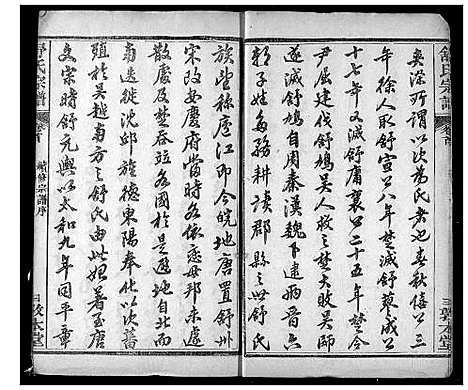 舒氏宗譜
卷首
敦本堂
矣深所謂以次為氏者也春秋僖公三
年徐人取舒宣公八年楚滅舒蓼成公
十七年又滅舒庸襄公二十五年楚令
尹屈建伐舒鳩吴人救之楚大敗吴師
遂滅舒鳩自周秦漢魏下逮兩晉六
朝子姓多務耕讀郡縣之世舒氏
族望稱廬江即今皖地唐置舒州
宋改安慶府當時各依慈母邦未遽
散處及楚吞竝各國於是遷地自北而
南遷徙沈邱旌德東陽奉化以次蕃
殖於吴越南方之舒氏由此始著至唐
文宗時舒元輿以太和九年同平章
舒氏宗譜
卷首
續修宗譜序
敦本堂